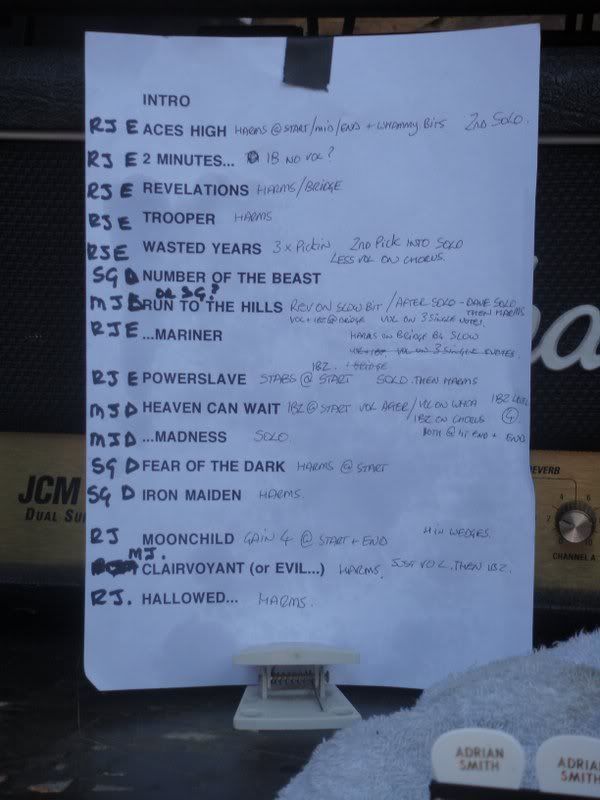 INTRO
RJ E ACES HIGH HARMS @ START/MID/END + WHAMMY BITS 2ND SOLO.
RJ E 2 MINUTES... IB NO VOL?
RJ E REVELATIONS HARMS/BRIDGE
RJ E TROOPER HARMS
RJ E WASTED YEARS 3 x PICKIN 2ND PICK INTO SOLO
LESS VOL ON CHORUS.
SG D NUMBER OF THE BEAST
OR SG?
MJ D RUN TO THE HILLS REV ON SLOW BIT / AFTER SOLO - DAVE SOLO THEN HARMS
VOL + IBZ @ BRIDGE VOL ON 3 SINGLE NOTES.
RJ E ...MARINER HARMS ON BRIDGE B4 SLOW
VOL ON 3 SINGLE NOTES.
IBZ. BRIDGE
RJ E POWERSLAVE STABS @ START SOLO. THEN HARMS
MJ D HEAVEN CAN WAIT IBZ @ START VOL AFTER/VOL ON WHOA IBZ LEVEL
IBZ ON CHORUS 4
BOTH @ HI END + END
MJ D ...MADNESS SOLO.
SG D FEAR OF THE DARK HARMS @ START
SG D IRON MAIDEN HARMS.
RJ MOONCHILD GAIN 4 @ START + END 4 IN WEDGES.
MJ.
CLAIRVOYANT (or EVIL...) HARMS. JUST VOL. THEN IBZ.
RJ. HALLOWED... HARMS.
JCM
DUAL SU
REVERB
2
4
6
10
CHANNEL A
ADRIAN
SMITH
ADRIA
SMITH